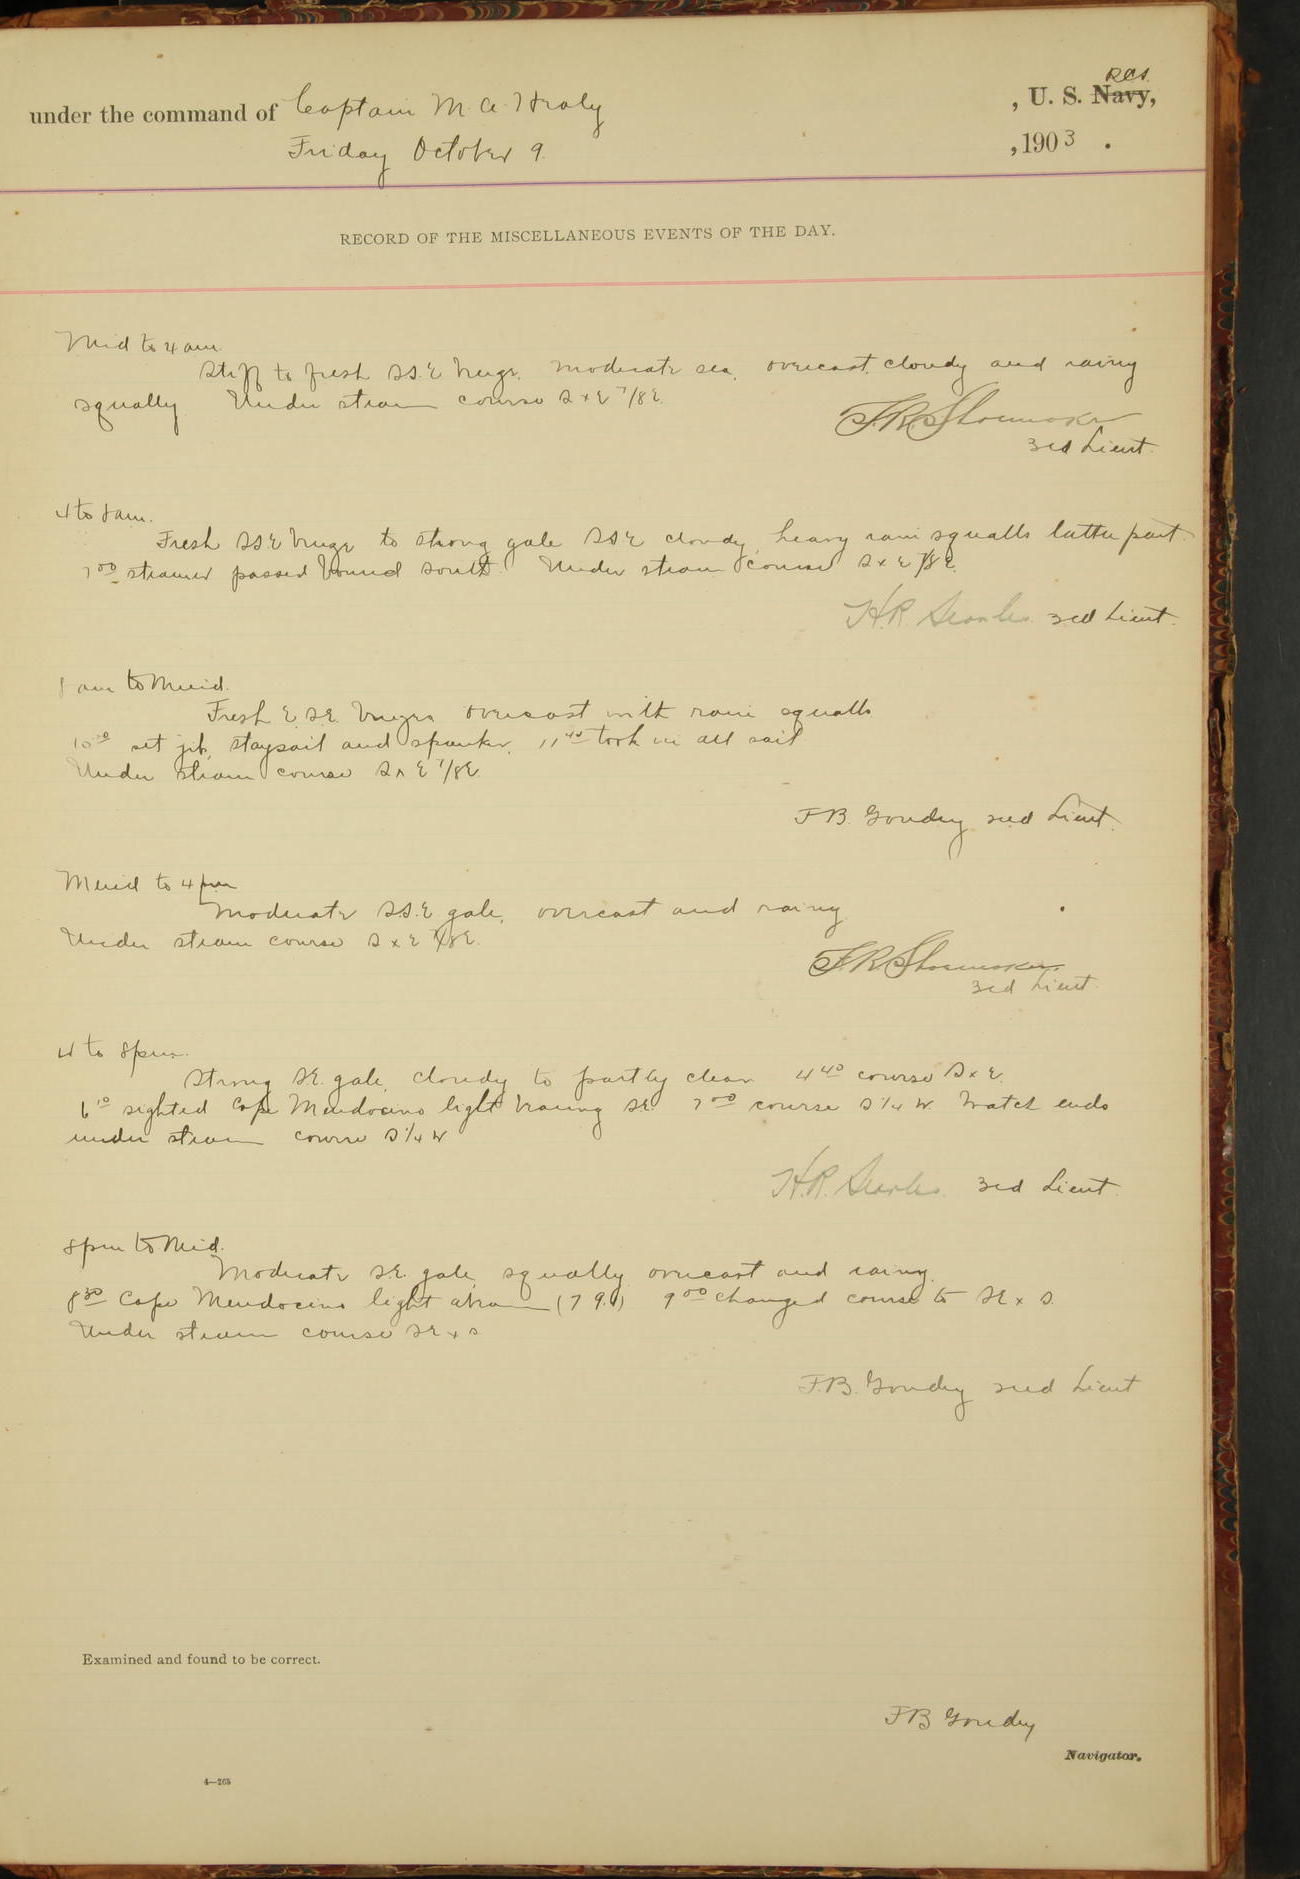 under the command of Captain M. A. Healy , U. S. Navy, RCS.
Friday October 9. , 1903 .
RECORD OF THE MISCELLANEOUS EVENTS OF THE DAY.
Mid to 4 am.
Stiff to fresh SS.E breeze, moderate sea, overcast, cloudy and rainy
squally Under steam course S x E 7/8 E.
F.R. Shoemaker
3rd Lieut.
4 to 8 am.
Fresh SS.E breeze to strong gale SSE cloudy, heavy rain squalls latter part.
7 00 steamer passed bound south. Under steam course S x E 7/8 E.
H.R. Searles. 3rd Lieut.
8 am to Merid.
Fresh E.S.E. breezes overcast with rain squalls
set jib, staysail and spanker, 11 40 took in all sail
Under steam course S x E 7/8 E.
F.B. Goudey 2nd Lieut.
Merid to 4 pm
Moderate SS.E gale, overcast and rainy
Under steam course S x E 7/8 E.
F.R. Shoemaker.
3rd Lieut.
4 to 8 pm.
Strong S.E. gale, cloudy to partly clear 4 40 course S x E.
6 10 sighted Cape Mendocino light bearing SE 7 00 course S 1/4 W. Watch ends
under steam course S 1/4 W
H.R. Searles. 3rd Lieut.
8 pm to Mid.
Moderate S.E. gale, squally, overcast and rainy.
8 30 Cape Mendocino light abeam 9 00 changed course to SE x S.
Under steam course SE x S
F.B. Goudey 2nd Lieut
Examined and found to be correct.
F B Goudey
Navigator.
4—265